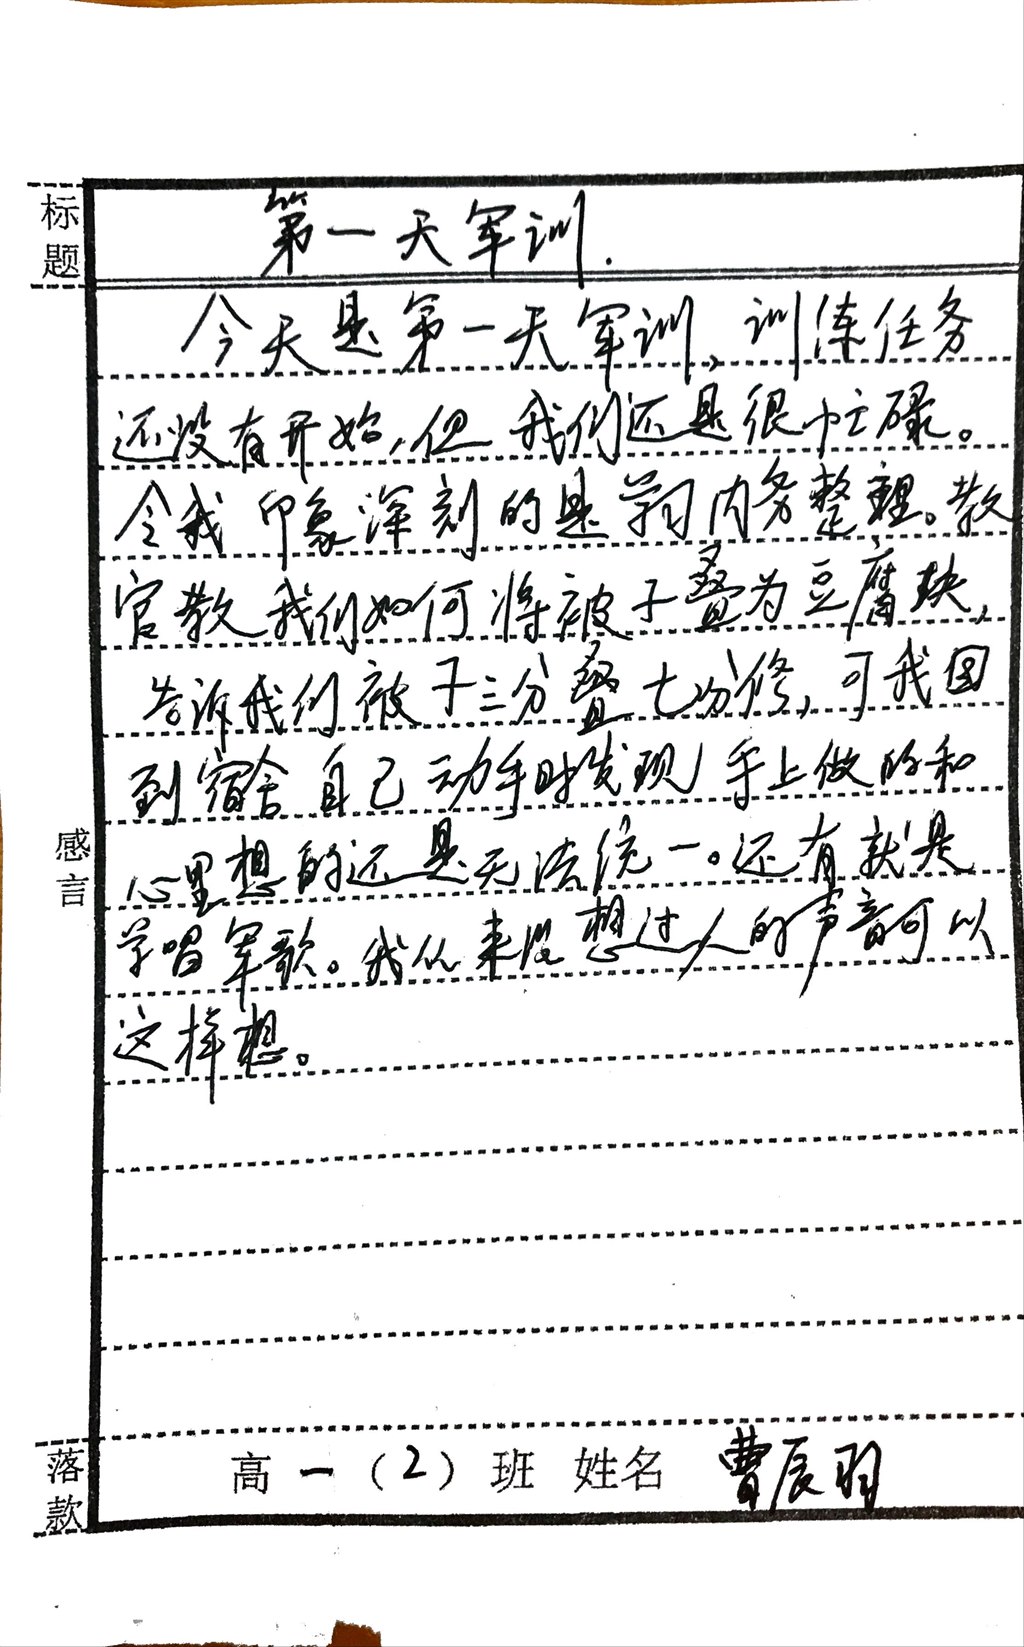 标题
第一天军训.
今天是第一天军训,训练任务
还没有开始,但我们还是很忙碌。
令我印象深刻的是学习内务整理。教
官教我们如何将被子叠为豆腐块,
告诉我们被子三分叠七分修,可我回
到宿舍自己动手时发现手上做的和
心里想的还是无法统一。还有就是
学唱军歌。我从来没想过人的声音可以
这样想。
感言
落款
高一(2)班 姓名 曹辰羽